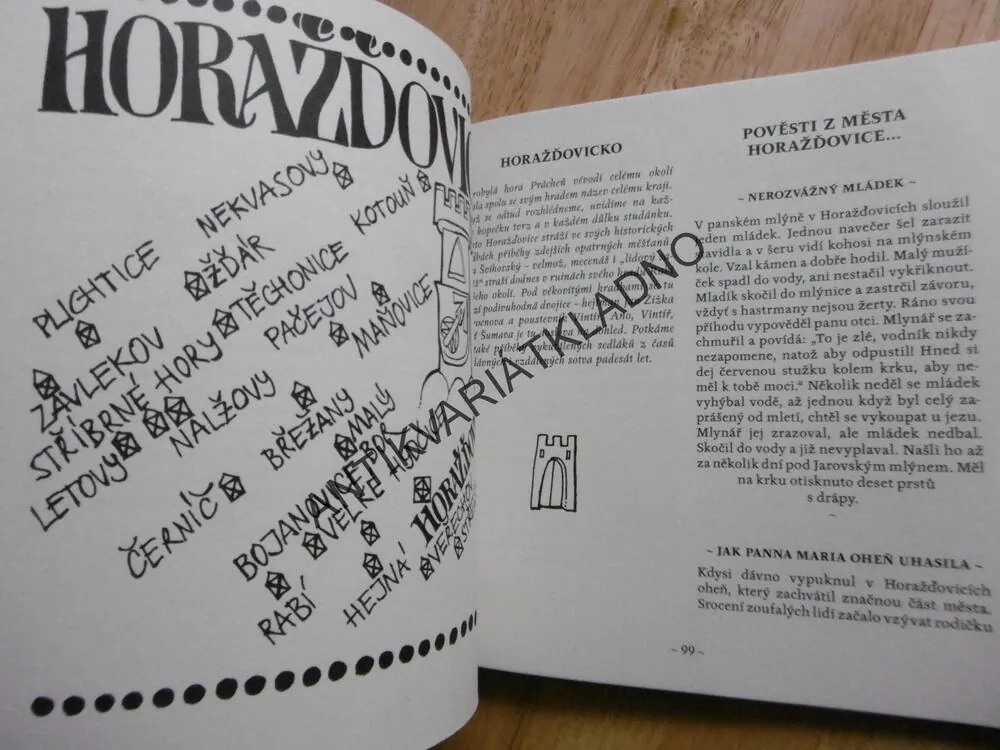 HORAŽĎOVIC
NEKVASOVY
KOTOUŇ
PLICHTICE
ŽĎÁR
TĚCHONICE
PAČEJOV
MAŇOVICE
ZÁVLEKOV
STŘÍBRNÉ HORY
NALŽOVY
LETOVY
BŘEŽANY
MALÝ
BOR
VELKÉ
ČERNÍČ
BOJANOVICE
HORAŽĎ
RABÍ
HEJNÁ
HORAŽĎOVICKO
robylá hora Prácheň vévodí celému okolí
la spolu se svým hradem název celému kraji.
ž se odtud rozhlédneme, uvidíme na kaž-
kopečku tvrz a v každém důlku studánku.
to Horažďovice stráží ve svých historických
bách příběhy zdejších opatrných měšťanů
Švihovský – velmož, mecenáš i „lidový
stráží dodnes v ruinách svého
jeho okolí. Pod věkovitými
podivuhodná dvojice – Jan Žižka
rocnova a poustevník Vintíř. Ano, Vintíř,
Šumava je tu na dohled. Potkáme
také příběhy sedláků z časů
dávných vzdálených sotva padesát let.
POVĚSTI Z MĚSTA
HORAŽĎOVICE...
~ NEROZVÁŽNÝ MLÁDEK ~
V panském mlýně v Horažďovicích sloužil
jeden mládek. Jednou navečer šel zarazit
stavidla a v šeru vidí kohosi na mlýnském
kole. Vzal kámen a dobře hodil. Malý muží-
ček spadl do vody, ani nestačil vykřiknout.
Mladík skočil do mlýnice a zastrčil závoru,
vždyť s hastrmany nejsou žerty. Ráno svou
příhodu vypověděl panu otci. Mlynář se za-
chmuřil a povídá: „To je zlé, vodník nikdy
nezapomene, natož aby odpustil! Hned si
dej červenou stužku kolem krku, aby ne-
měl k tobě moci.“ Několik neděl se mládek
vyhýbal vodě, až jednou když byl celý za-
prášený od mletí, chtěl se vykoupat u jezu.
Mlynář jej zrazoval, ale mládek nedbal.
Skočil do vody a již nevyplaval. Našli ho až
za několik dní pod Jarovským mlýnem. Měl
na krku otisknuto deset prstů
s drápy.
~
~ JAK PANNA MARIA OHEŇ UHASILA ~
Kdysi dávno vypuknul v Horažďovicích
oheň, který zachvátil značnou část města.
Srocení zoufalých lidí začalo vzývat rodičku
~ 99 ~
ANTIKVARIÁTKLADNO